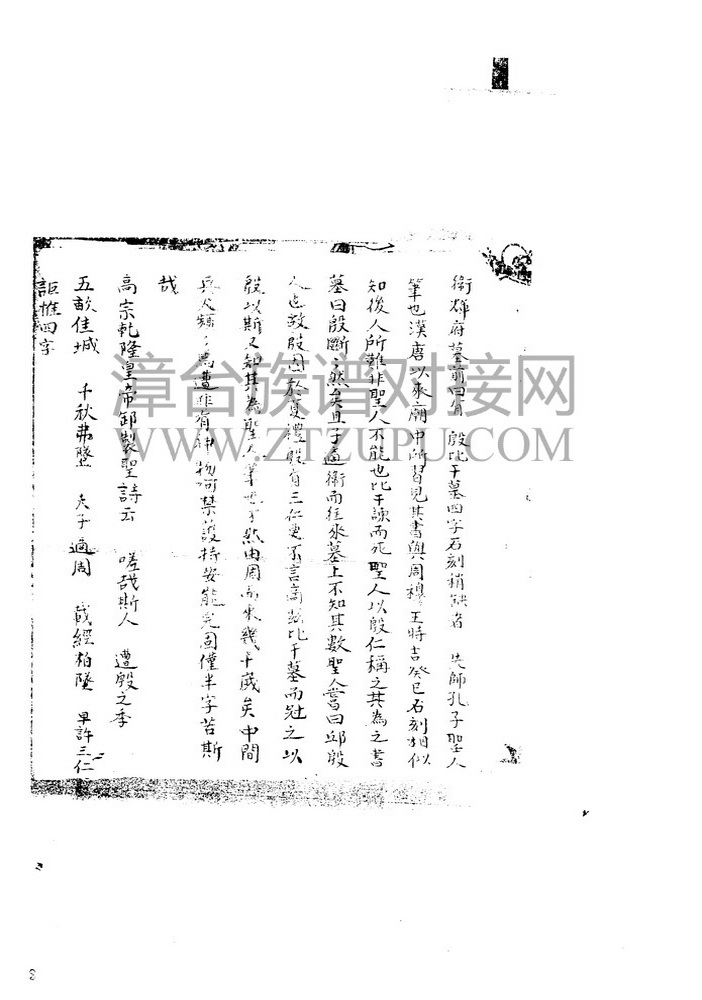 衛輝府墓前四有 殷比干墓四字石刻稍缺者 先師孔子聖人
筆也漢唐以來廟中所習見其書與周穆王時吉癸巳石刻相似
知後人所難非聖人不能也比干諫而死聖人以殷仁稱之其為之書
墓曰殷斷〻然矣且子適衛而往來墓上不知其數聖人嘗曰邱殷
人也故殷因於夏禮殷有三仁更言商茲比干墓而冠之以
殷以斯又知其為聖人筆也然由周而來幾千歲矣中間
兵火類〻為遭非有神物呵禁護持安能完固僅半字苔斯
哉
高宗乾隆皇帝御製聖詩云 嗟哉斯人 遭殷之季
五畝佳城 千秋弗墜 夫子適周 載經柏墜 早許三仁
詎惟四字
漳台族谱对接网
WWW.ZTZUPU.COM